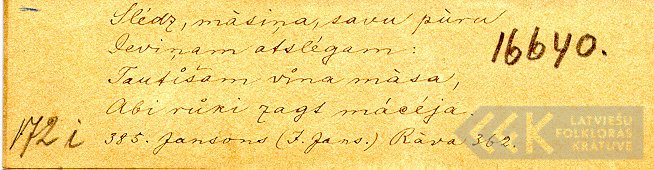 Slédz, màsiņa, savu pùru
Deviņam atslégam:
Tautišam viņa màsa,
Abi rùki zagt mácéja.
385. Jansons (J. Jans.) Ràva 362.
16640.
172 i
LATVIEŠU
FOLKLORAS
KRĀTUVE